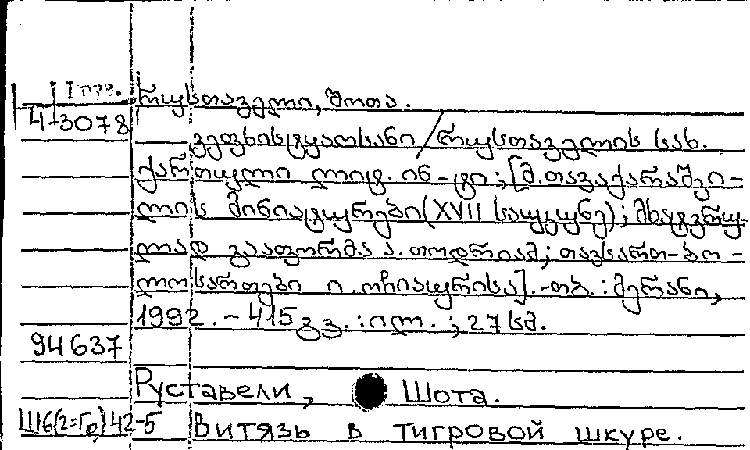 რუსთაველი, შოთა.
4-3078
ვეფხისტყაოსანი / რუსთაველის სახ.
ქართული ლიტ. ინ-ტი ; [მ. თავაქარაშვი-
ლის მინიატურები (XVII საუკუნე) ; მხატვრუ-
ლად გააფორმა ა. თოდრიამ ; თავსართ-ბო-
ლოსართები ი. ოჩიაურისა]. - თბ. : მერანი,
1992. - 415 გვ. : ილ. ; 27 სმ.
94637
Руставели, Шота.
Ш6(2=Гр)42-5 Витязь в тигровой шкуре.